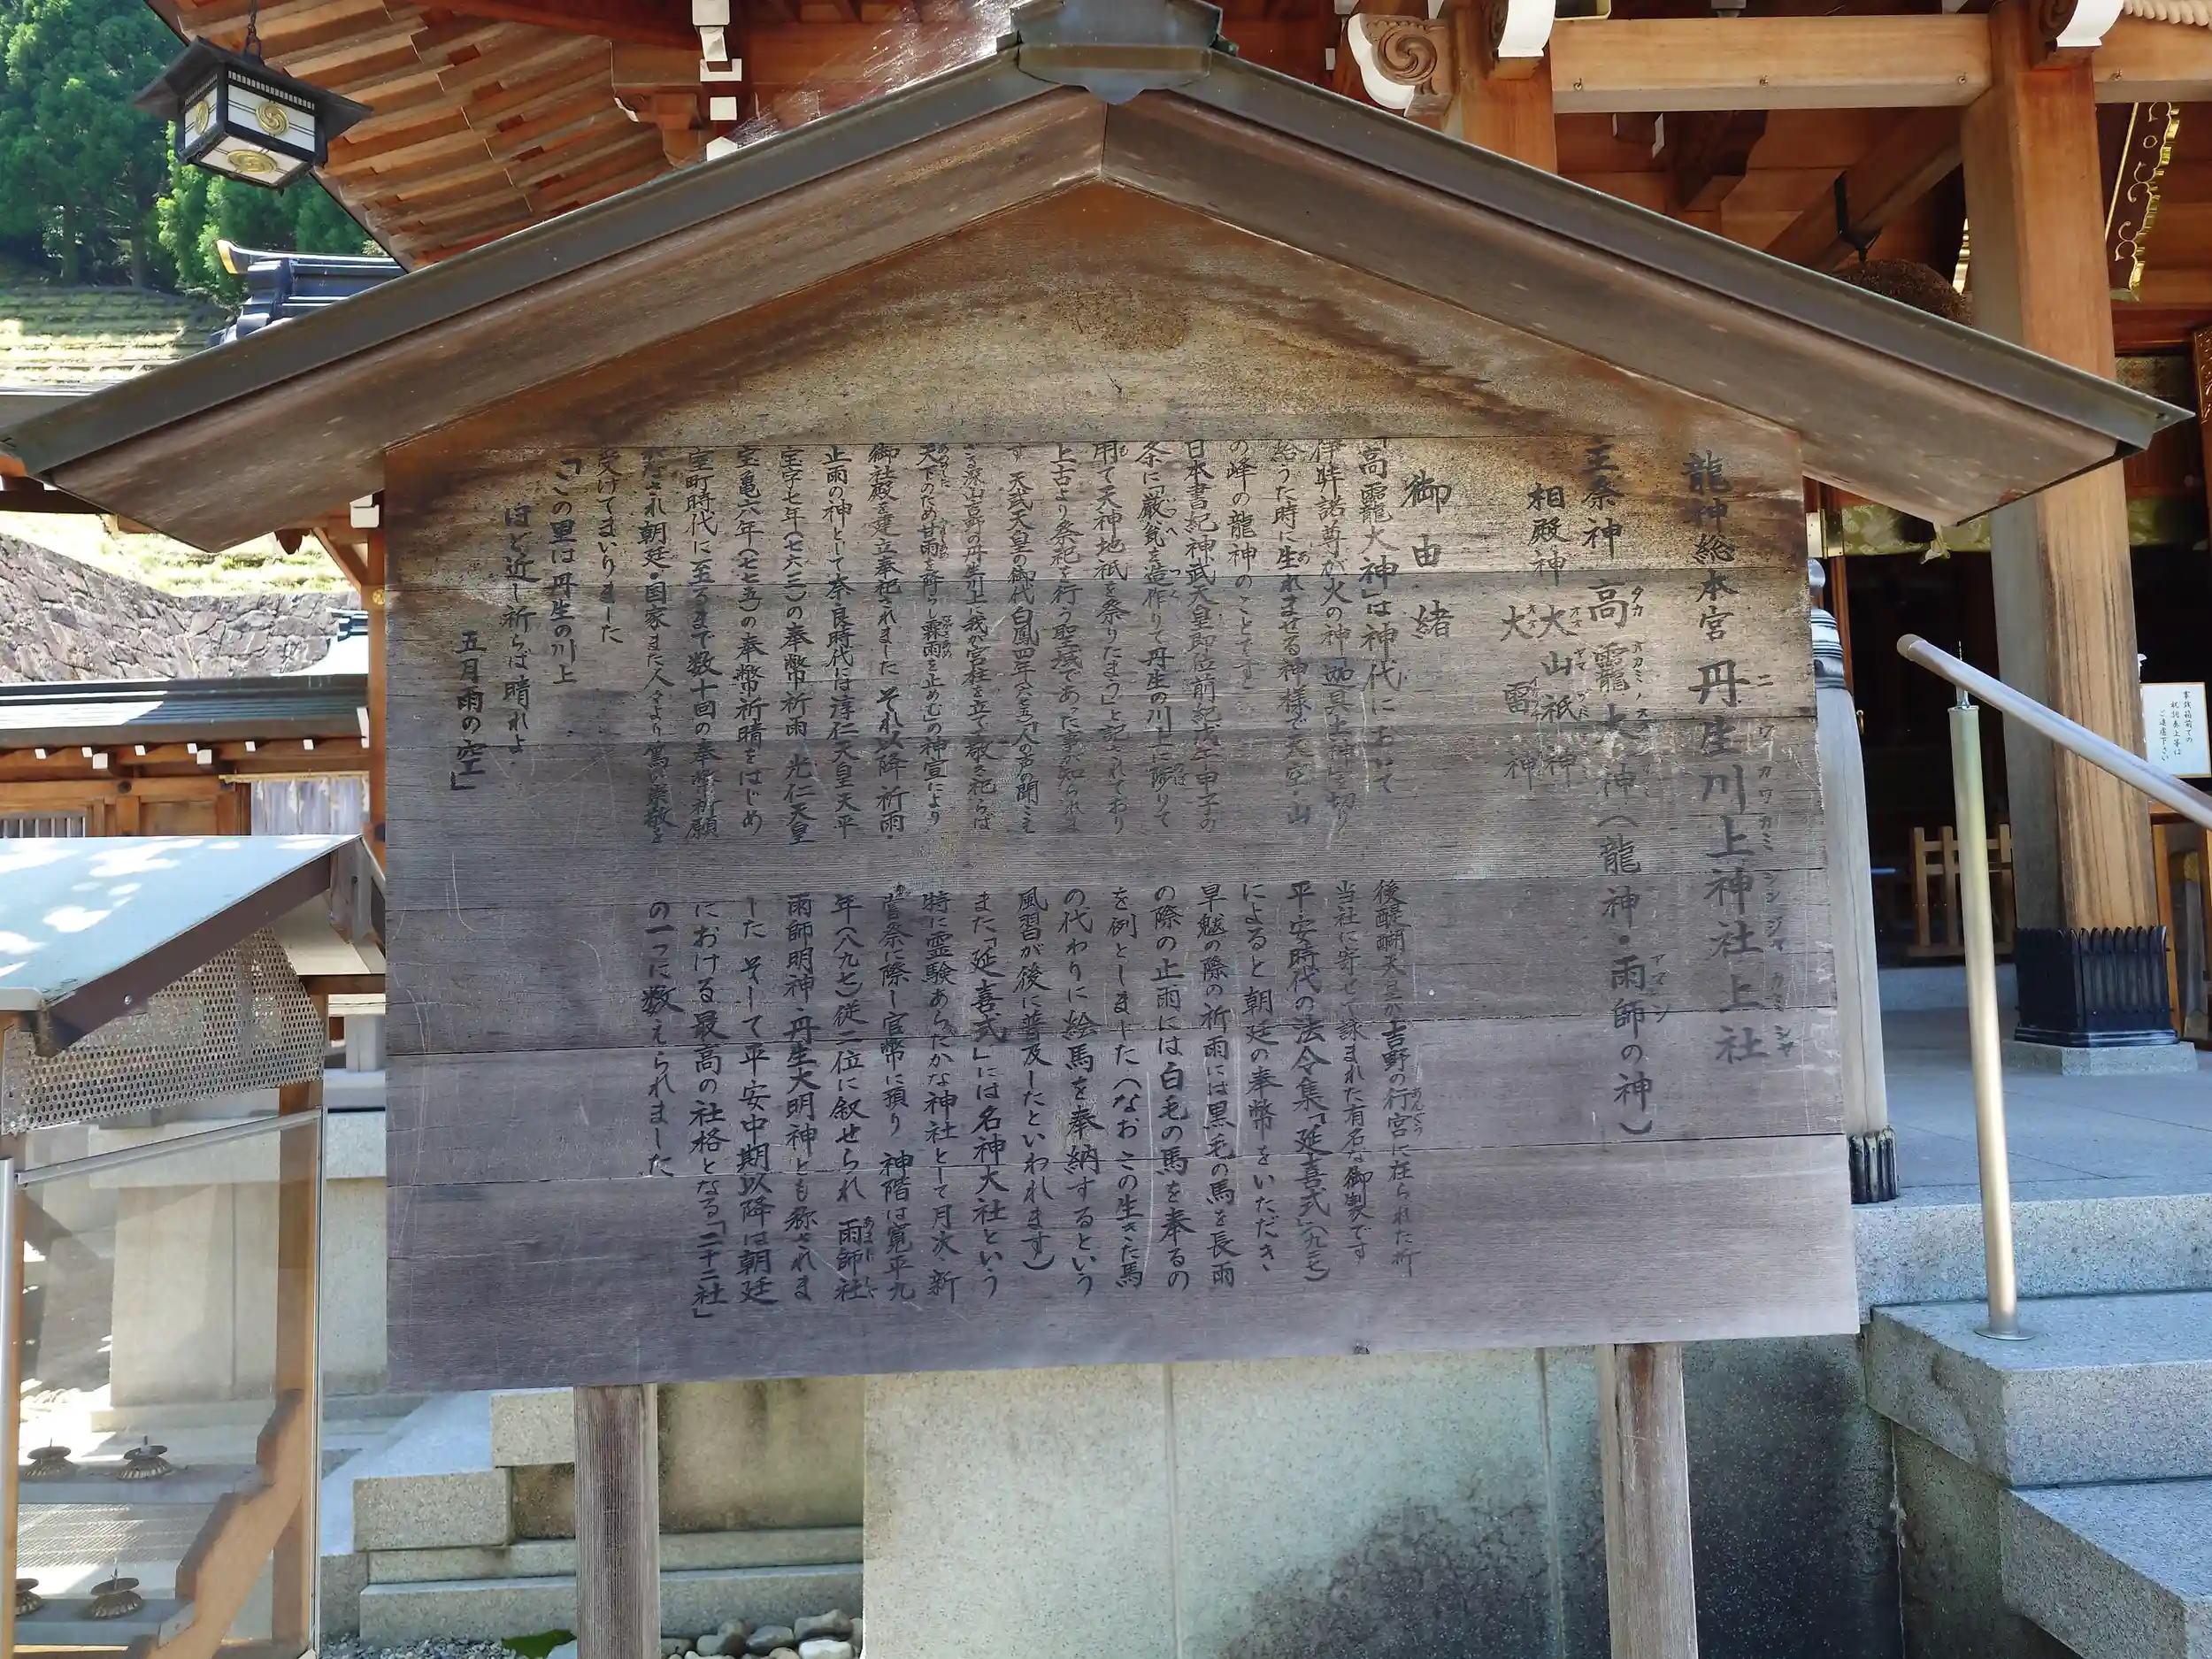 龍神総本宮 丹生川上神社上社
ニウカワカミジンジャカミシャ
主祭神 高龗大神(龍神・雨師の神)
タカオカミノ
相殿神 大山祇神
大雷神
御由緒
「高龗大神」は神代において
伊弉諾尊が火の神「迦具土神」を切り
給うた時に生れませる神様で天空・山
の峰の龍神のことです
日本書紀神武天皇即位前紀戊午年甲子の
条に「厳瓮を造作りて丹生の川上に陟りて
用て天神地祇を祭りたまう」と記されており
上古より祭祀を行う聖域であった事が知られま
す 天武天皇の御代白鳳四年(六七五)「人の声の聞こえ
ざる深山吉野の丹生川上に我が宮柱を立て敬き祀らば
天下のため甘雨を降らし霖雨を止めむ」の神宣により
御社殿を建立奉祀されました それ以降祈雨・
止雨の神として奈良時代には淳仁天皇天平
宝字七年(七六三)の奉幣祈雨 光仁天皇
宝亀六年(七七五)の奉幣祈晴をはじめ
室町時代に至るまで数十回の奉幣祈願
がなされ朝廷・国家また人々より篤い崇敬を
受けてまいりました
「この里は丹生の川上
ほど近し祈らば晴れよ
五月雨の空」
後醍醐天皇が吉野の行宮に在られた折
当社に寄せて詠まれた有名な御製です
平安時代の法令集「延喜式」(九二七)
によると朝廷の奉幣をいただき
旱魃の際の祈雨には黒毛の馬を長雨
の際の止雨には白毛の馬を奉るの
を例としました(なおこの生きた馬
の代わりに絵馬を奉納するという
風習が後に普及したといわれます)
また「延喜式」には名神大社という
特に霊験あらたかな神社として月次 新
嘗祭に際し官幣に預り 神階は寛平九
年(八九七)従二位に叙せられ 雨師社
雨師明神・丹生大明神とも称されま
した そして平安中期以降は朝廷
における最高の社格となる「二十二社」
の一つに数えられました